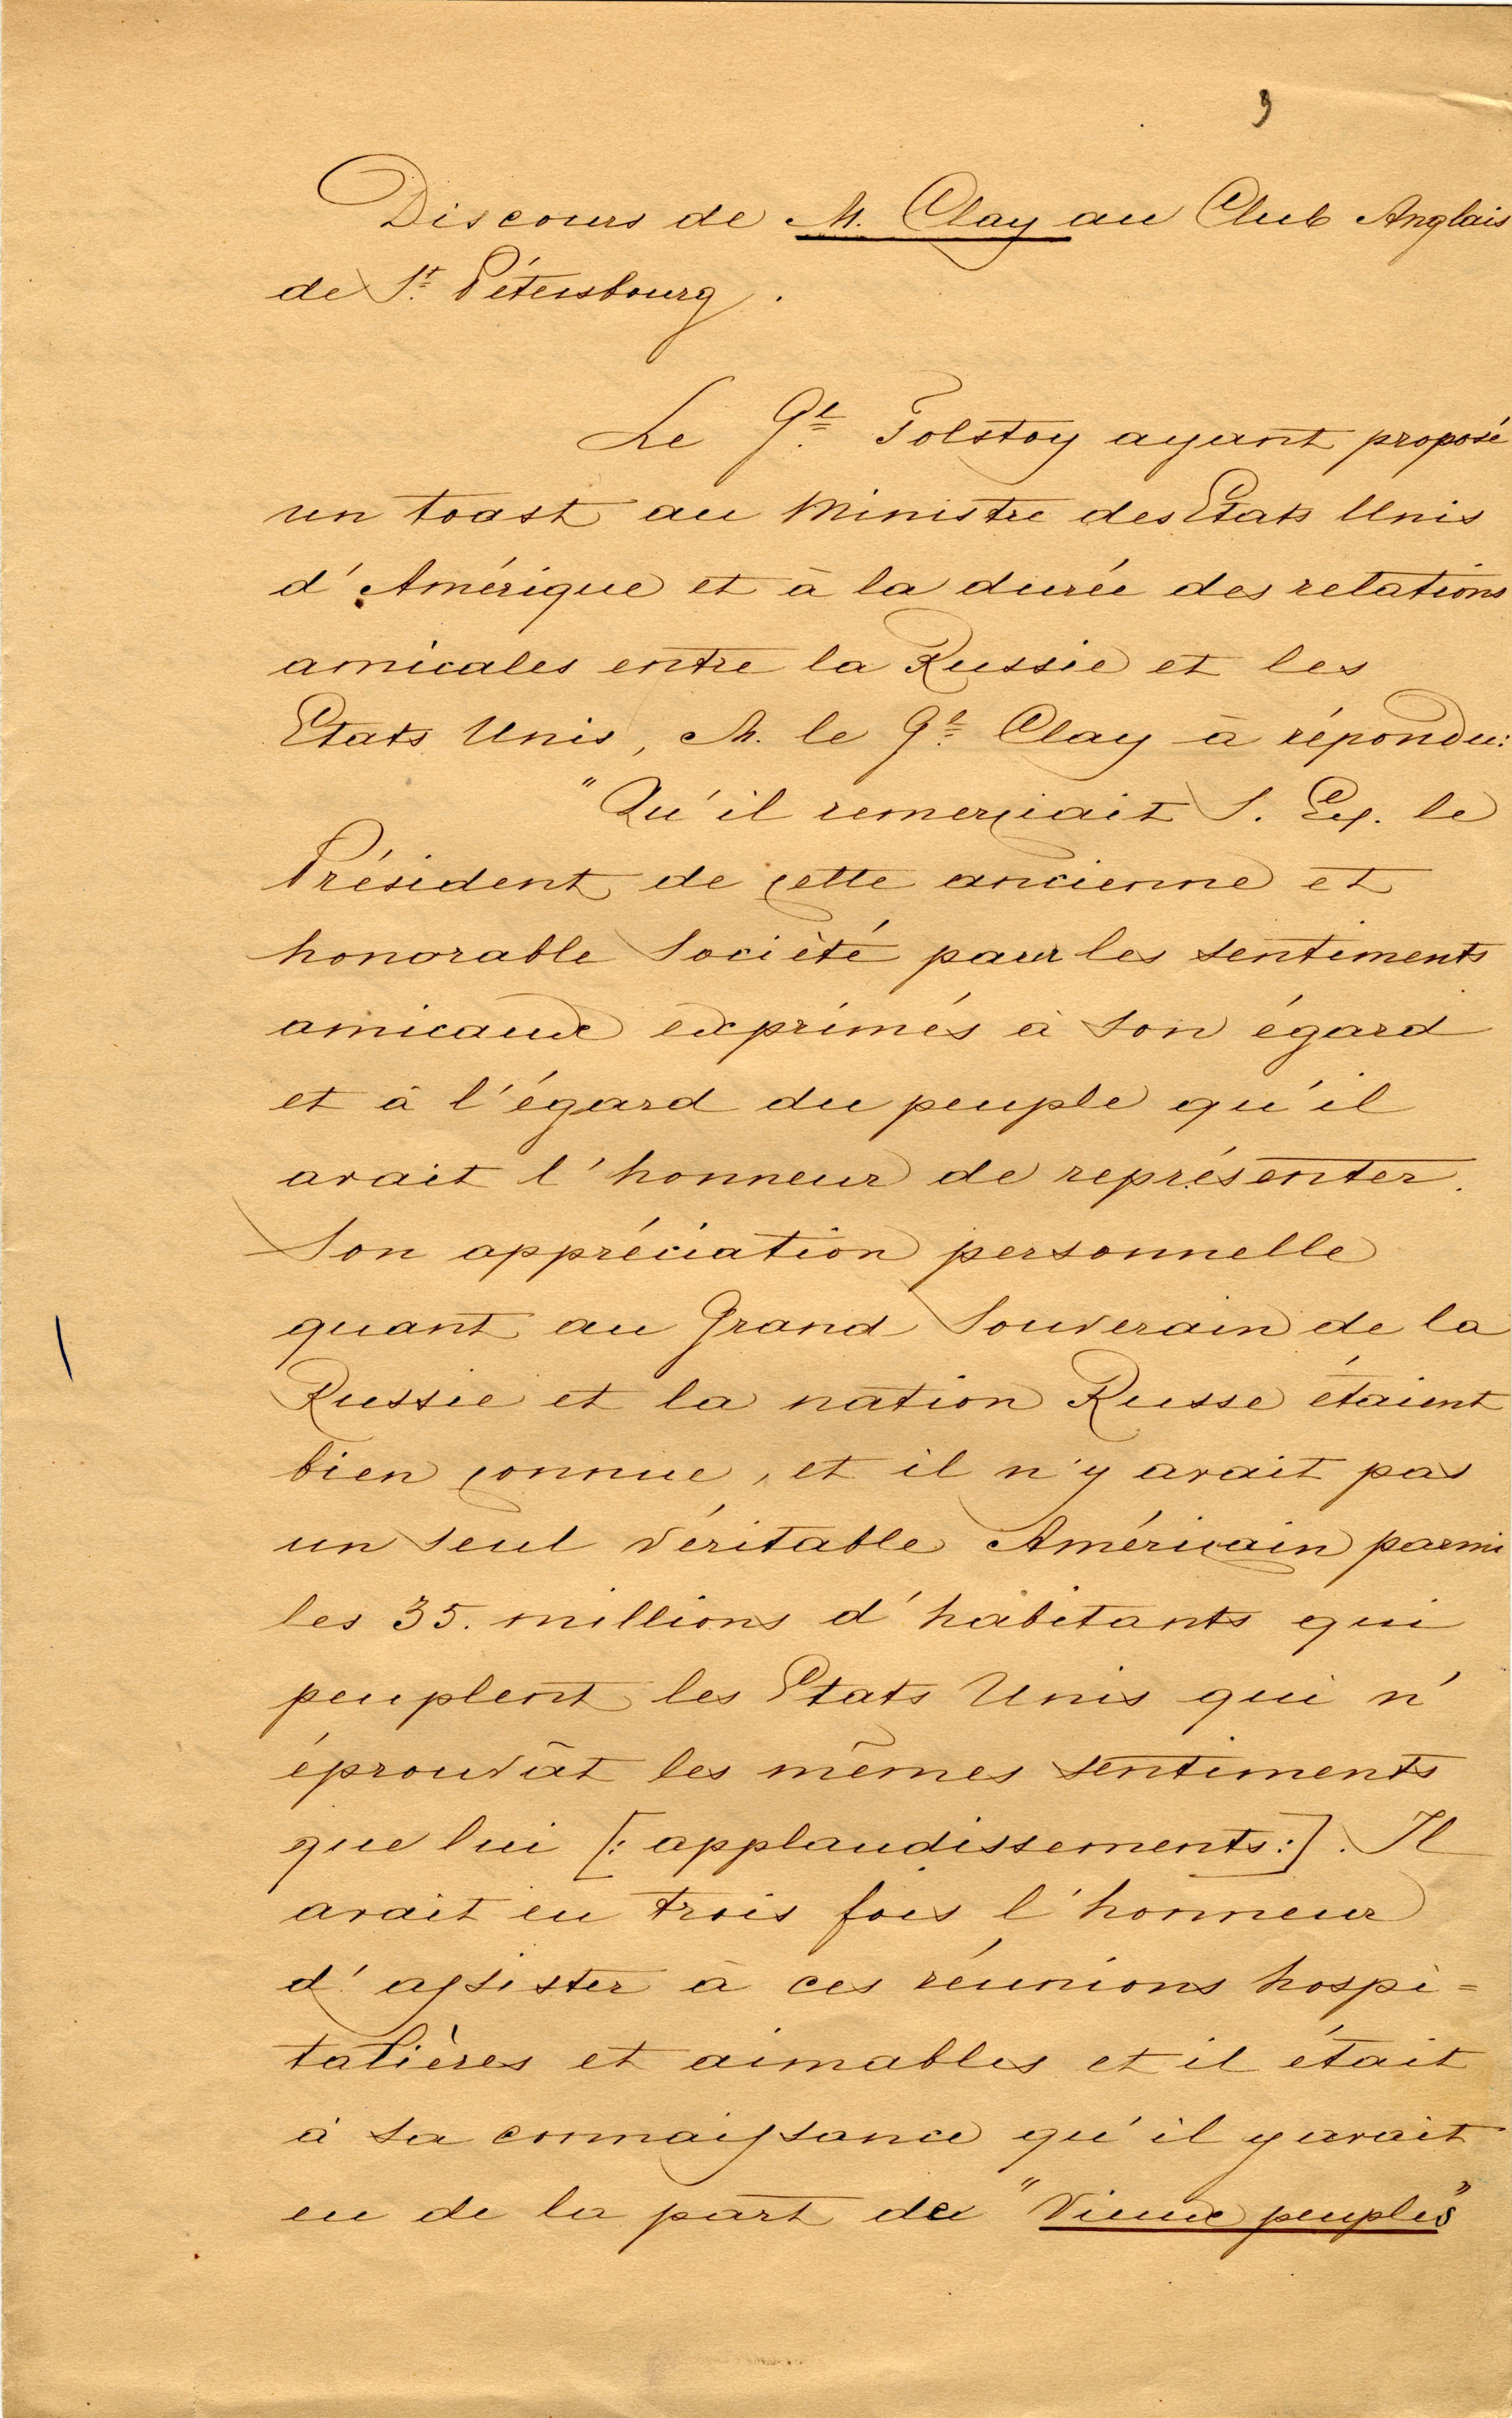 9
Discours de M. Clay au Club Anglais
de St. Pétersbourg.
Le Gl. Tolstoy ayant proposé
un toast au Ministre des Etats Unis
d'Amérique et à la durée des relations
amicales entre la Russie et les
Etats Unis, M. le Gl. Clay à répondu:
"Qu'il remerçiait S. Ex. le
Président de çette ancienne et
honorable Sociètè pour les sentiments
amicaux exprimés à son égard
et à l'égard du peuple qu'il
avait l'honneur de représenter.
Son appréciation personnelle
quant au Grand Souverain de la
Russie et la nation Russe étaient
bien çonnue, et il n'y avait pas
un seul véritable Américain parmi
les 35. millions d'habitants qui
peuplent les Etats Unis qui n'
éprouvât les mêmes sentiments
que lui [: applaudissements:]. Il
avait eu trois fois l'honneur
d'assister à ces réunions hospi=
talières et aimables et il était
à sa connaissance qu'il y avait
eu de la part de "Vieux peuples"